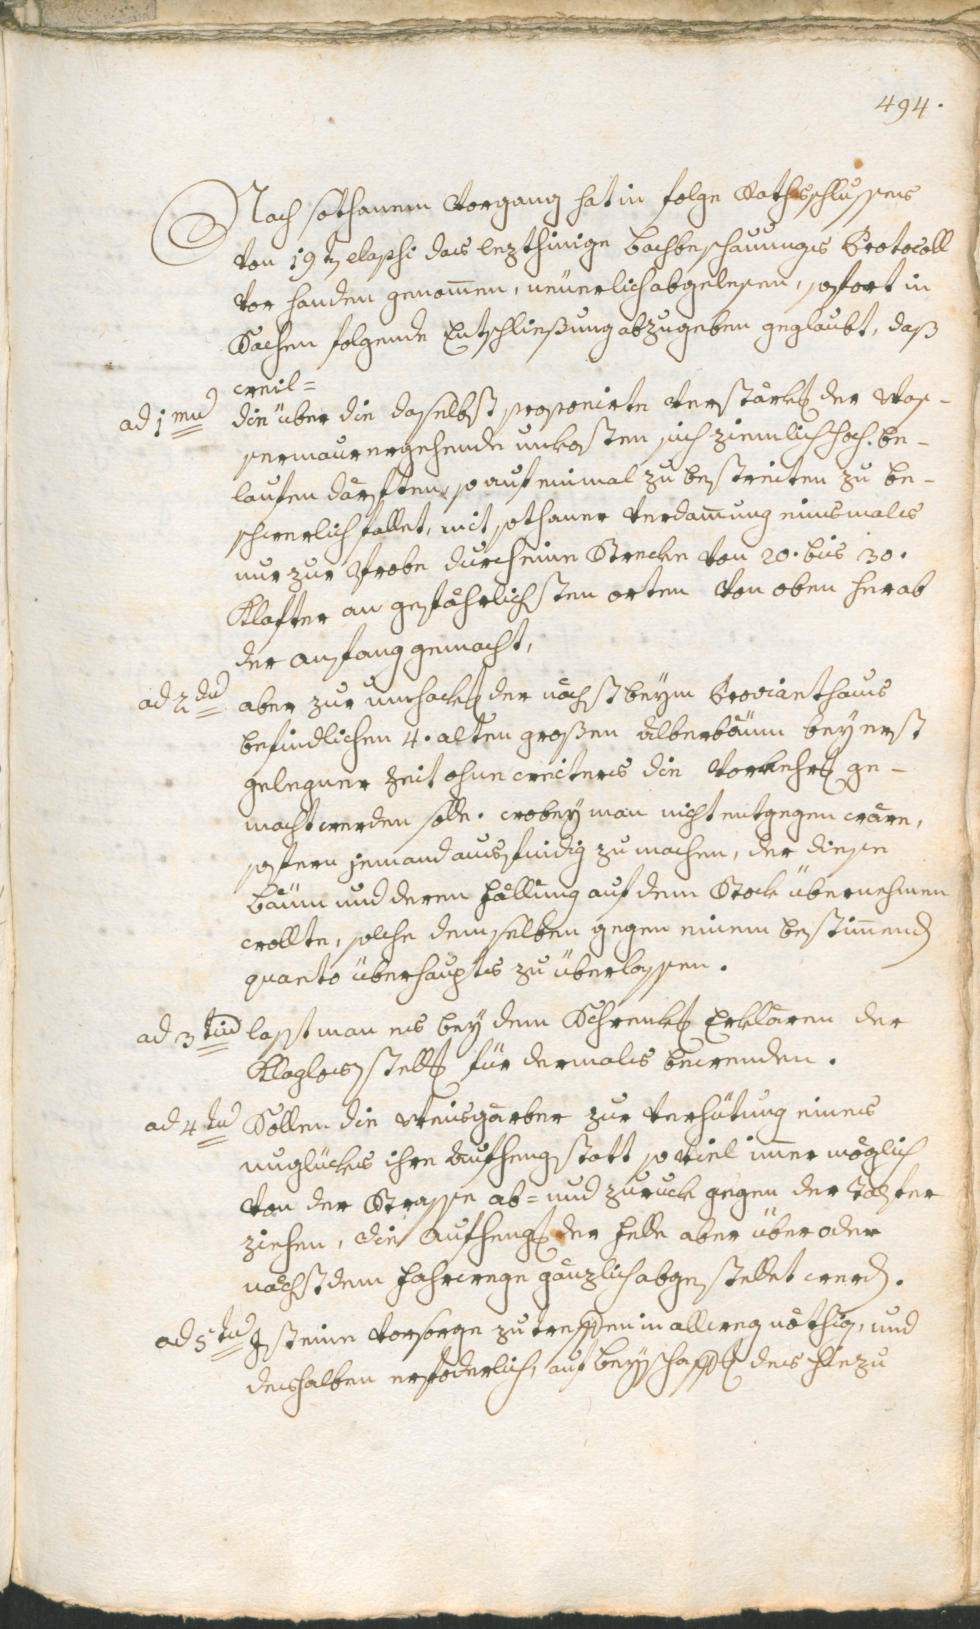 494.
Nach sothanem Vorgang hat in folge Rathsschlusses
von 19ten elapsi das leztherige bachbeschauungs Protocoll
vor handen genommen, neuerlich abgelesen, sofort in
Sachen folgende Entschließung abzugeben geglaubt, daß
weil=
ad 1mu die über die daselbst proponirte verstärkg der Was-
sermaur ergehende unkosten sich ziemlich hoch be-
laufen därften, so auf einmal zu bestreiten zu be-
schwerlich fallet, mit sothaner verdamung einsmals
nur zur Probe durch eine Strecke von 20. bis 30.
Klafter an gefährlichsten orten von oben herab
der anfang gemacht,
ad 2du aber zur umhackg der nächst beym Provianthaus
befindlichen 4. alten großen älberbäum bey erst
gelegner Zeit ohne weiters die Vorkehrg ge-
macht werden solle. wobey man nicht entgegen wäre,
sofern jemand ausfindig zu machen, der diese
bäum und deren fällung auf dem Stock übernehmen
wollte, solche demselben gegen einem bestimmenden
quanto überhaupts zu überlassen.
ad 3tiu lasst man es bey dem Schrenkg Erklären der
Klaglosstellg für dermals bewenden.
ad 4tu Sollen die Weisgärber zur verhütung eines
unglückes ihre aufhengstatt so viel imer möglich
von der Strasse ab= und zuruck gegen der
ziehen, die aufhengg der felle aber über oder
nächst dem fahrwege gänzlich abgestellet werden.
ad 5tu Ist eine vorsorge zu treffen in allweg nöthig, und
deshalben erfoderlich, auf beyschaffg des hiezu